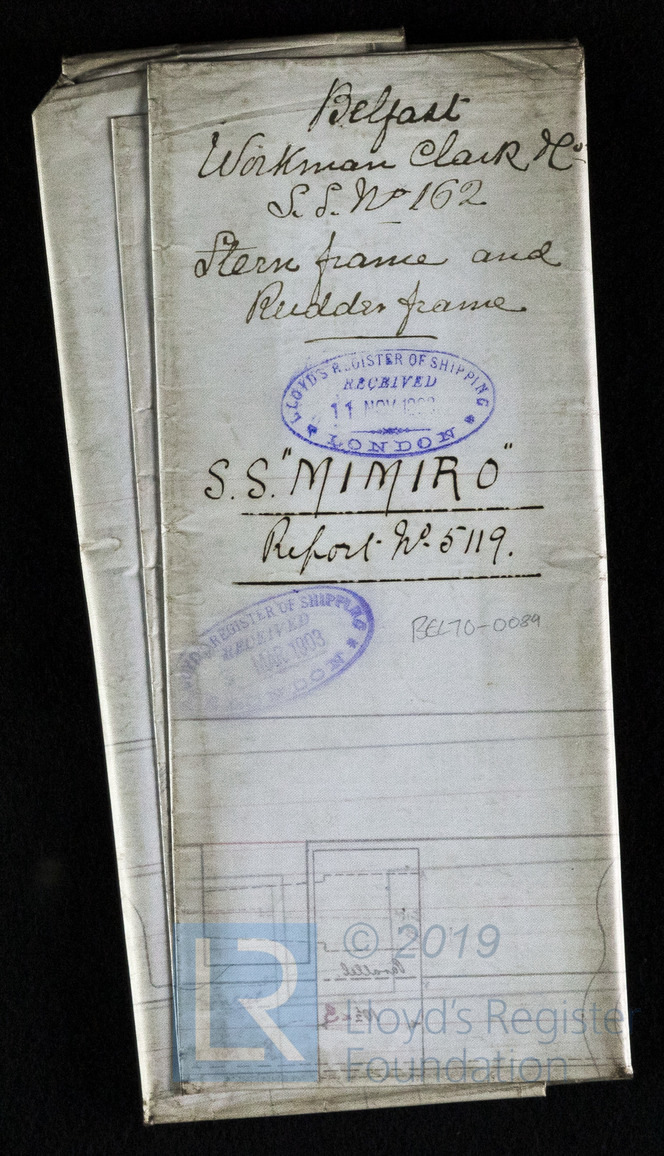 Belfast
Workman Clark & Co
S.S. No 162
Stern frame and
Rudder frame
LLOYD'S REGISTER OF SHIPPING
RECEIVED
11 NOV
LONDON
S.S. "MIMIRO"
Report No. 5119.
LLOYD'S REGISTER OF SHIPPING
RECEIVED
MAR 1903
LONDON
BEL70-0089
Parallel
LR
© 2019
Lloyd's Register
Foundation